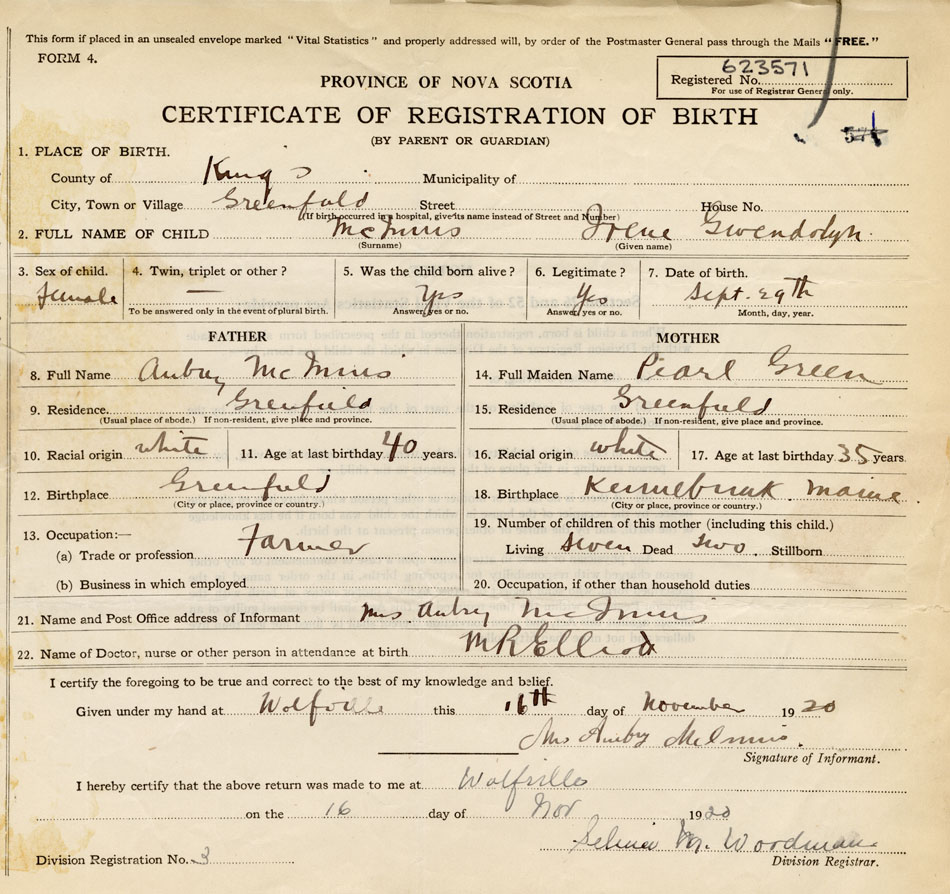 This form if placed in an unsealed envelope marked "Vital Statistics" and properly addressed will, by order of the Postmaster General pass through the Mails "FREE."
FORM 4.
623571
Registered No.
For use of Registrar General only.
PROVINCE OF NOVA SCOTIA
CERTIFICATE OF REGISTRATION OF BIRTH
(BY PARENT OR GUARDIAN)
1. PLACE OF BIRTH.
County of Kings Municipality of
City, Town or Village Greenfield Street House No.
(If birth occurred in a hospital, give its name instead of Street and Number)
2. FULL NAME OF CHILD McInnis Irene Gwendolyn
(Surname) (Given name)
3. Sex of child. 4. Twin, triplet or other? 5. Was the child born alive? 6. Legitimate? 7. Date of birth.
female — Yes Yes Sept. 29th
To be answered only in the event of plural birth. Answer, yes or no. Answer, yes or no. Month, day, year.
FATHER MOTHER
8. Full Name Aubry McInnis 14. Full Maiden Name Pearl Green
9. Residence. Greenfield 15. Residence Greenfield
(Usual place of abode.) If non-resident, give place and province. (Usual place of abode.) If non-resident, give place and province.
10. Racial origin white 11. Age at last birthday 40 years. 16. Racial origin white 17. Age at last birthday 35 years.
12. Birthplace Greenfield 18. Birthplace Maine
(City or place, province or country.) (City or place, province or country.)
13. Occupation:— 19. Number of children of this mother (including this child.)
(a) Trade or profession Farmer Living Seven Dead two Stillborn
(b) Business in which employed 20. Occupation, if other than household duties
21. Name and Post Office address of Informant Mrs. Aubry McInnis
22. Name of Doctor, nurse or other person in attendance at birth M R Elliott
I certify the foregoing to be true and correct to the best of my knowledge and belief.
Given under my hand at Wolfville this 16th day of November 1920
Mrs Aubry McInnis.
Signature of Informant.
I hereby certify that the above return was made to me at Wolfville
on the 16 day of Nov 1920
M. Woodman
Division Registration No. 3 Division Registrar.